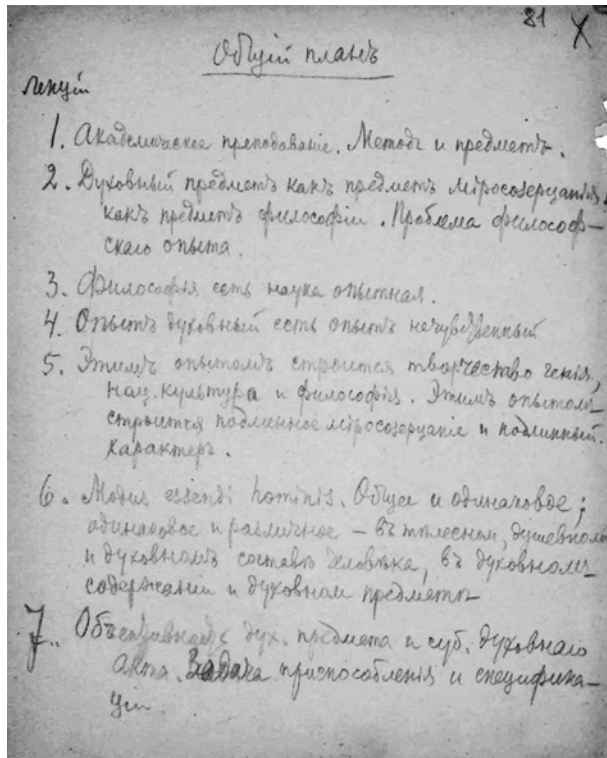 81 X
Общій планъ
лекцій
1. Академическое преподаваніе. Методъ и предметъ.
2. Духовный предметъ какъ предметъ міросозерцанія,
какъ предметъ философіи. Проблема философ-
скаго опыта.
3. Философія есть наука опытная.
4. Опытъ духовный есть опытъ нечувственный
5. Этимъ опытомъ строится творчество генія,
нац. культура и философія. Этимъ опытомъ
строится подлинное міросозерцаніе и подлинный
характеръ.
6. Modus essendi hominis. Общее и одинаковое;
одинаковое и различное – въ тѣлесном, душевном
и духовномъ составѣ человѣка, въ духовномъ
содержаніи и духовном предметѣ
7. Объективность дух. предмета и суб. духовнаго
акта. Задача приспособленія и специфика-
ціи.